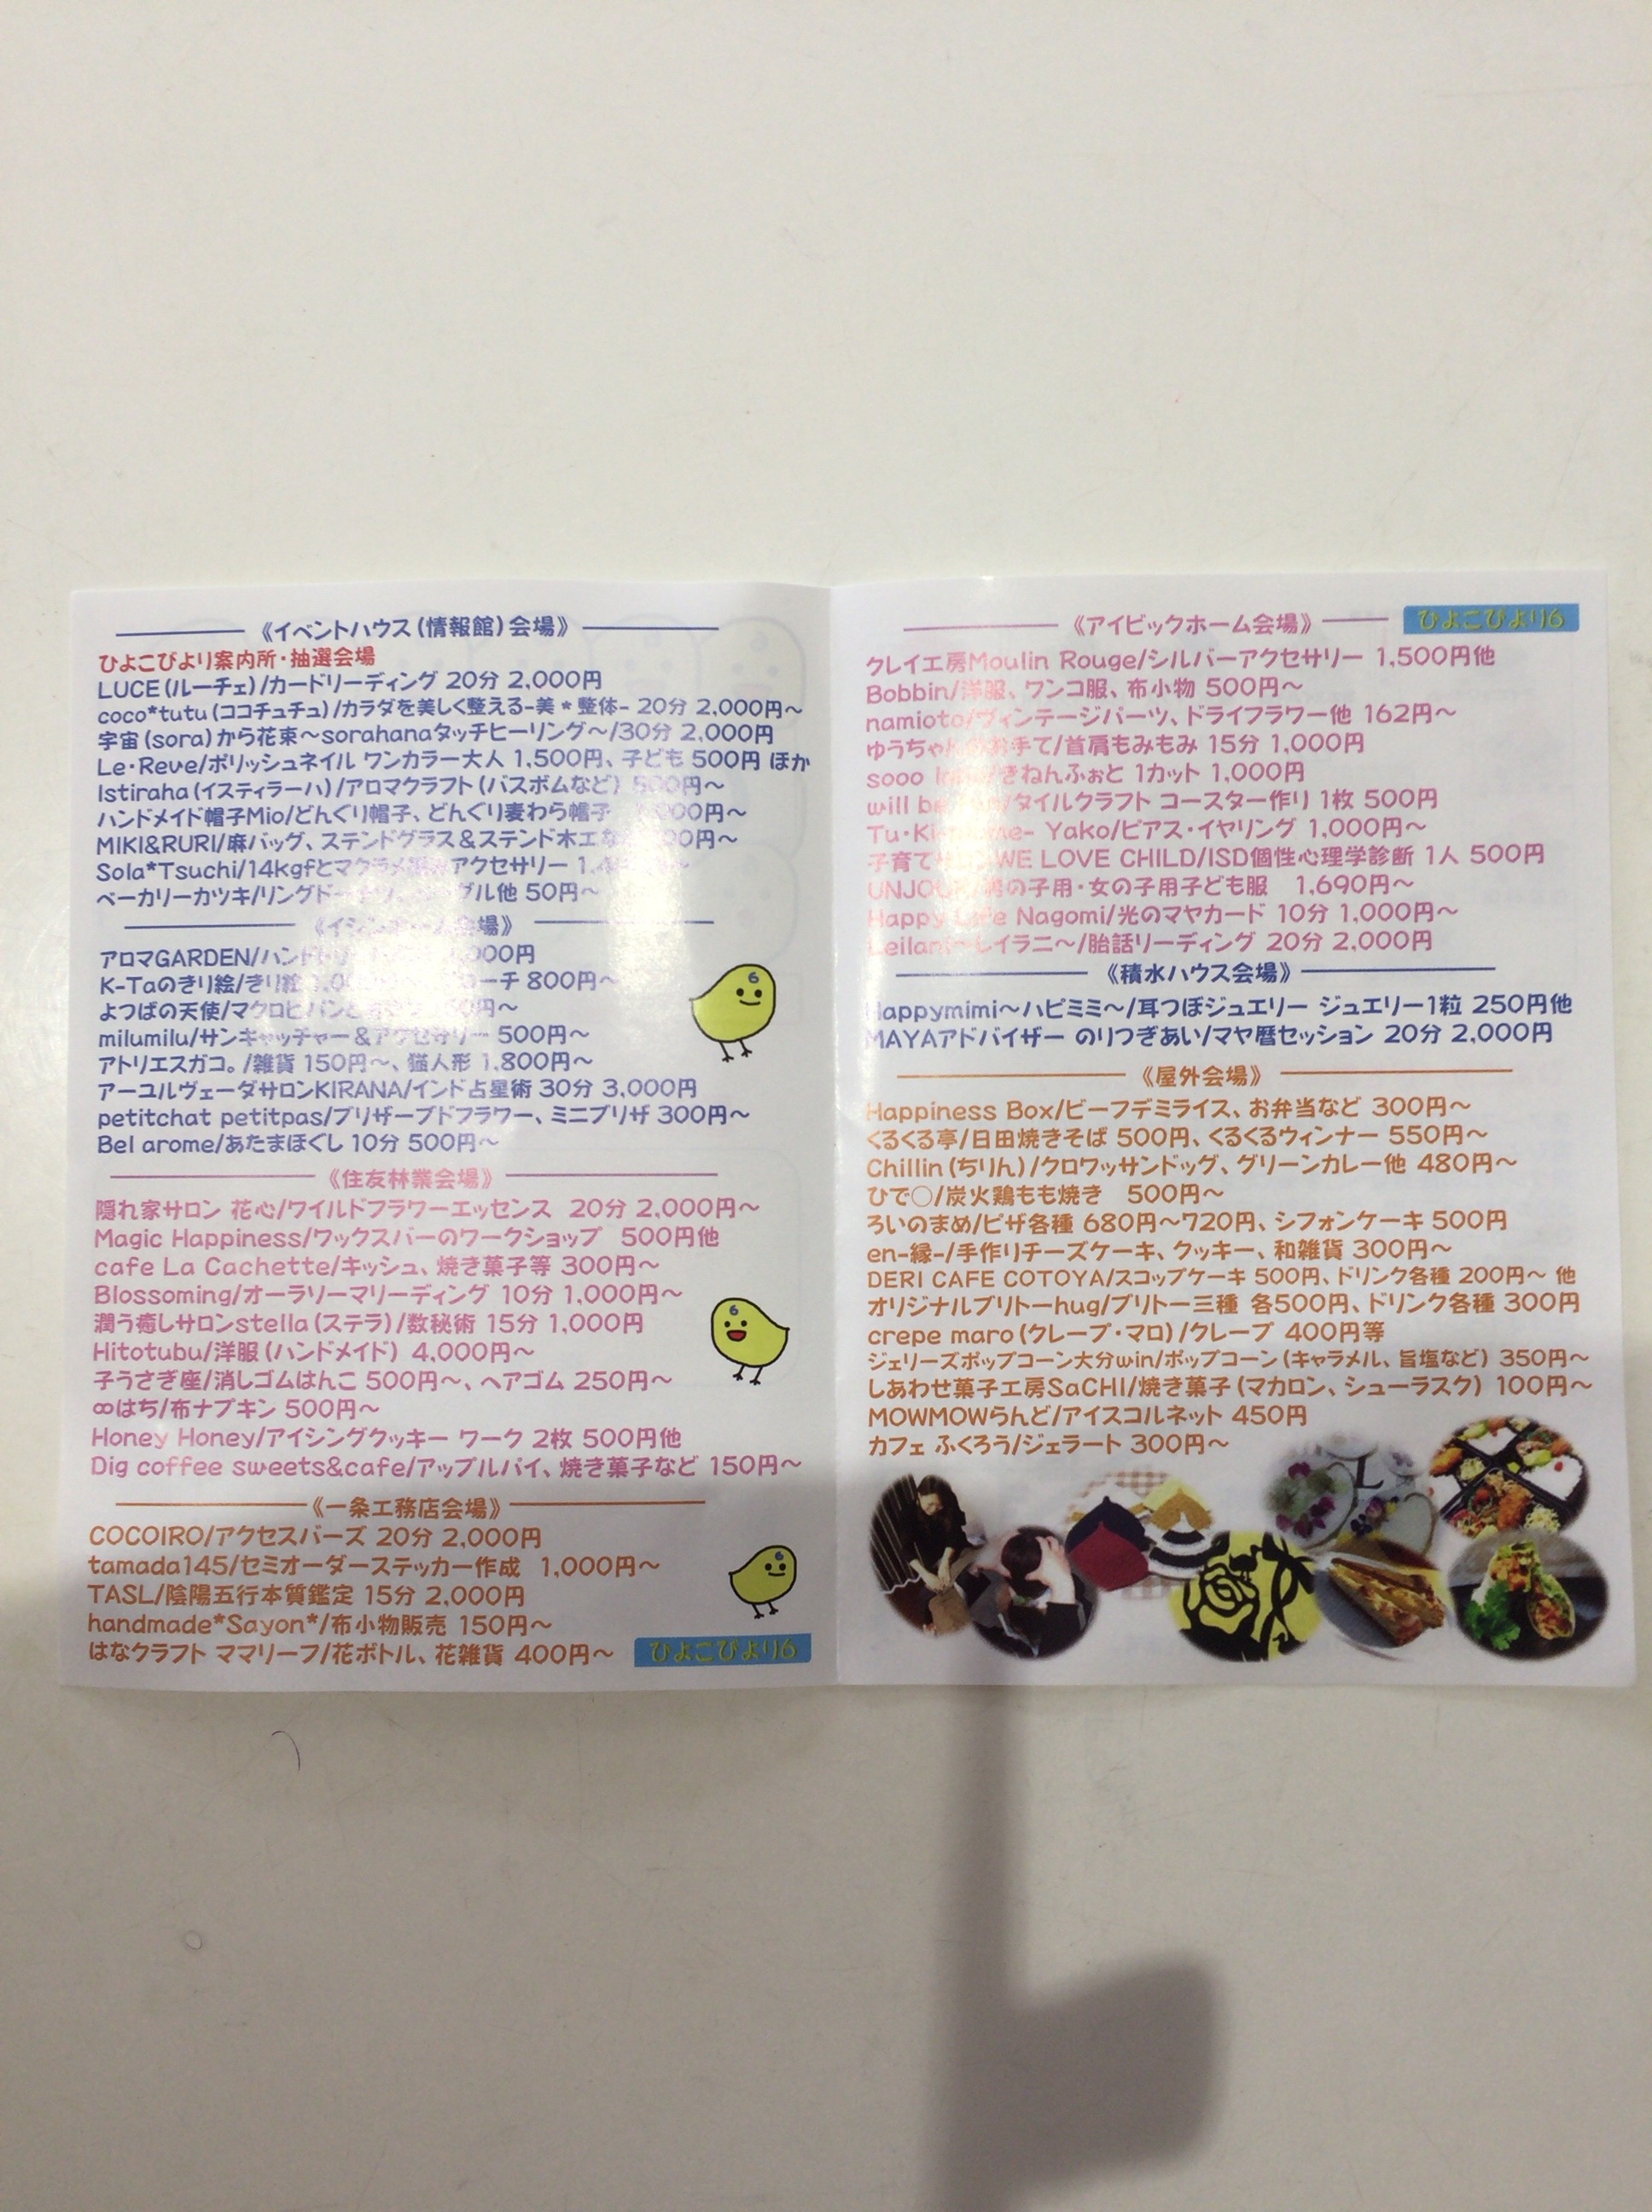 《イベントハウス(情報館)会場》
ひよこびより案内所・抽選会場
LUCE(ルーチェ)/カードリーディング 20分 2,000円
coco*tutu(ココチュチュ)/カラダを美しく整える-美*整体- 20分 2,000円〜
宇宙(sora)から花束〜sorahanaタッチヒーリング〜/30分 2,000円
Le・Reve/ポリッシュネイル ワンカラー大人 1,500円、子ども 500円 ほか
Istiraha(イスティラーハ)/アロマクラフト(バスボムなど) 500円〜
ハンドメイド帽子Mio/どんぐり帽子、どんぐり麦わら帽子
MIKI&RURI/麻バッグ、ステンドグラス&ステンド木工
Sola*Tsuchi/14kgfとマクラメ アクセサリー
ベーカリーカツキ/リング 他 50円〜
会場》
アロマGARDEN/ハンド
K-Taのきり絵/きり絵 800円〜
よつばの天使/マクロビパンと
milumilu/サンキャッチャー&アクセサリー 500円〜
アトリエスガコ。/雑貨 150円〜、猫人形 1,800円〜
アーユルヴェーダサロンKIRANA/インド占星術 30分 3,000円
petitchat petitpas/プリザーブドフラワー、ミニプリザ 300円〜
Bel arome/あたまほぐし 10分 500円〜
《住友林業会場》
隠れ家サロン 花心/ワイルドフラワーエッセンス 20分 2,000円〜
Magic Happiness/ワックスバーのワークショップ 500円他
cafe La Cachette/キッシュ、焼き菓子等 300円〜
Blossoming/オーラソーマリーディング 10分 1,000円〜
潤う癒しサロンstella(ステラ)/数秘術 15分 1,000円
Hitotubu/洋服(ハンドメイド) 4,000円〜
子うさぎ座/消しゴムはんこ 500円〜、ヘアゴム 250円〜
∞はち/布ナプキン 500円〜
Honey Honey/アイシングクッキー ワーク 2枚 500円他
Dig coffee sweets&cafe/アップルパイ、焼き菓子など 150円〜
《一条工務店会場》
COCOIRO/アクセスバーズ 20分 2,000円
tamada145/セミオーダーステッカー作成 1,000円〜
TASL/陰陽五行本質鑑定 15分 2,000円
handmade*Sayon*/布小物販売 150円〜
はなクラフト ママリーフ/花ボトル、花雑貨 400円〜
ひよこびより6
6
6
6
《アイビックホーム会場》
ひよこびより6
クレイ工房Moulin Rouge/シルバーアクセサリー 1,500円他
Bobbin/洋服、ワンコ服、布小物 500円〜
namioto/ヴィンテージパーツ、ドライフラワー他 162円〜
ゆうちゃんのお手て/首肩もみもみ 15分 1,000円
sooo /きねんふぉと 1カット 1,000円
will /タイルクラフト コースター作り 1枚 500円
Tu・Ki- Yako/ピアス・イヤリング 1,000円〜
子育て WE LOVE CHILD/ISD個性心理学診断 1人 500円
UNJOUR/男の子用・女の子用子ども服 1,690円〜
Happy Life Nagomi/光のマヤカード 10分 1,000円〜
Leilani〜レイラニ〜/胎話リーディング 20分 2,000円
《積水ハウス会場》
Happymimi〜ハピミミ〜/耳つぼジュエリー ジュエリー1粒 250円他
MAYAアドバイザー のりつぎあい/マヤ暦セッション 20分 2,000円
《屋外会場》
Happiness Box/ビーフデミライス、お弁当など 300円〜
くるくる亭/日田焼きそば 500円、くるくるウィンナー 550円〜
Chillin(ちりん)/クロワッサンドッグ、グリーンカレー他 480円〜
ひで○/炭火鶏もも焼き 500円〜
ろいのまめ/ピザ各種 680円〜720円、シフォンケーキ 500円
en-縁-/手作りチーズケーキ、クッキー、和雑貨 300円〜
DERI CAFE COTOYA/スコップケーキ 500円、ドリンク各種 200円〜 他
オリジナルブリトーhug/ブリトー三種 各500円、ドリンク各種 300円
crepe maro(クレープ・マロ)/クレープ 400円等
ジェリーズポップコーン大分win/ポップコーン(キャラメル、旨塩など) 350円〜
しあわせ菓子工房SaCHI/焼き菓子(マカロン、シューラスク) 100円〜
MOWMOWらんど/アイスコルネット 450円
カフェ ふくろう/ジェラート 300円〜